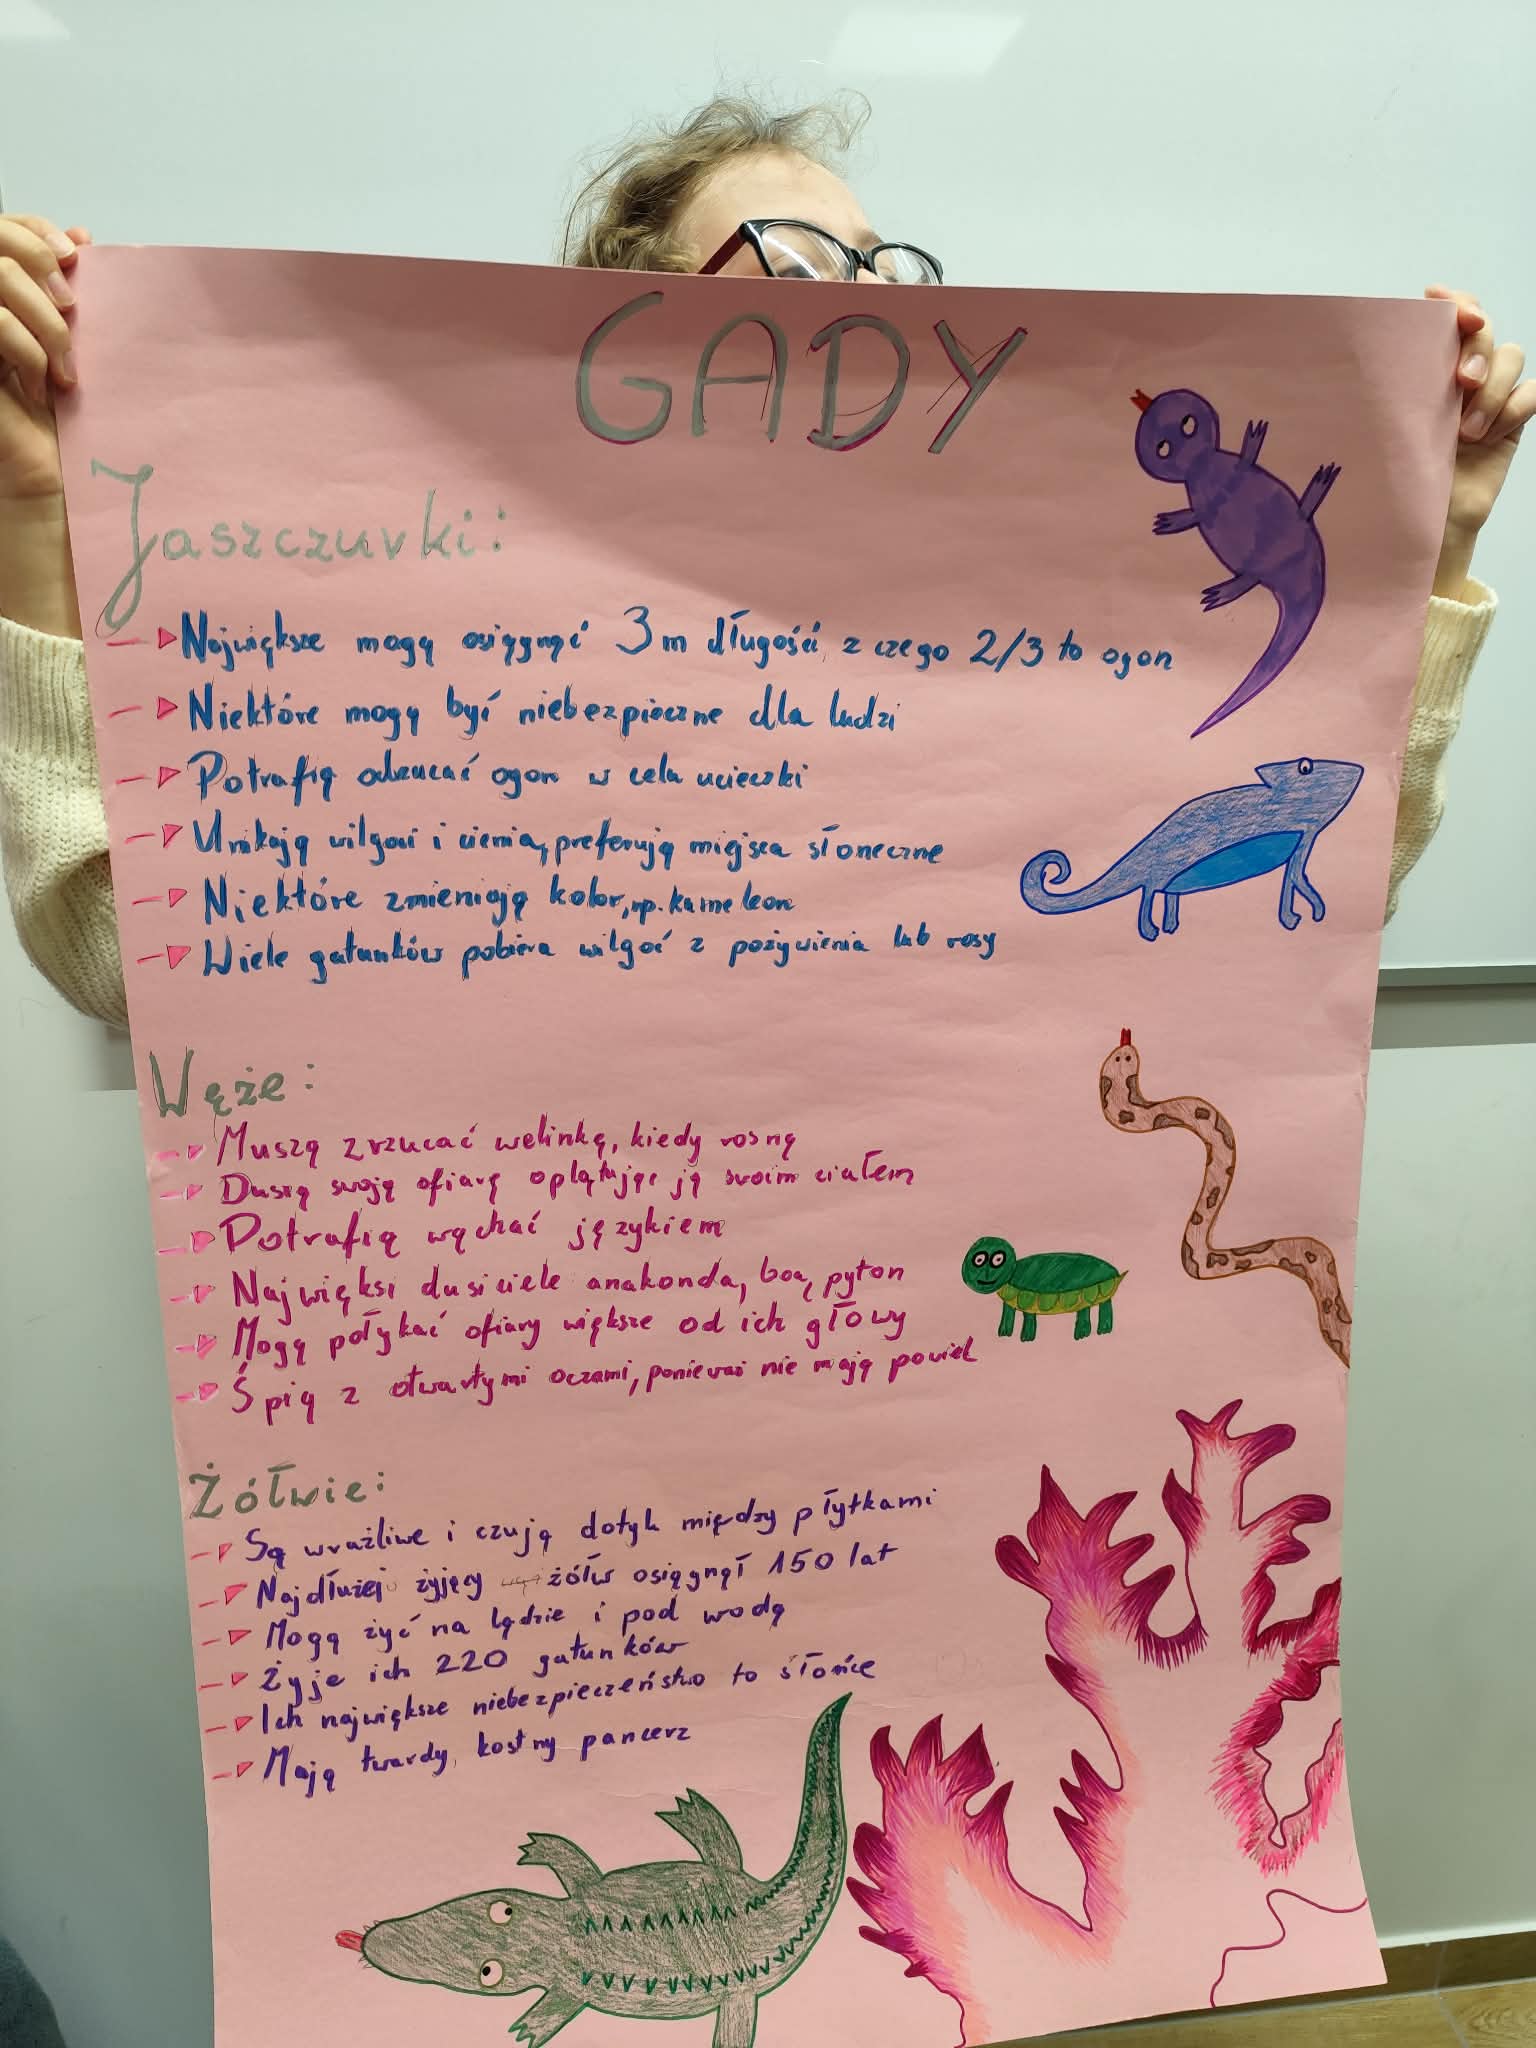 GADY
Jaszczuvki:
Największe mogą osiągnąć 3m długości, z czego 2/3 to ogon
Niektóre mogą być niebezpieczne dla ludzi
Potrafią odrzucać ogon w celu ucieczki
Unikają wilgoci i cienia, preferują miejsca słoneczne
Niektóre zmieniają kolor, np. kameleon
Wiele gatunków pobiera wilgoć z pożywienia lub rosy
Węże:
Muszą zrzucać welinkę, kiedy rosną
Duszą swoją ofiarę oplątując ją swoim ciałem
Potrafią wąchać językiem
Najwięksi dusiciele anakonda, boa, pyton
Mogą połykać ofiary większe od ich głowy
Śpią z otwartymi oczami, ponieważ nie mają powiek
Żółwie:
Są wrażliwe i czują dotyk między płytkami
Najdłużej żyjący żółw osiągnął 150 lat
Mogą żyć na lądzie i pod wodą
Żyje ich 220 gatunków
Ich największe niebezpieczeństwo to słońce
Mają twardy, kostny pancerz